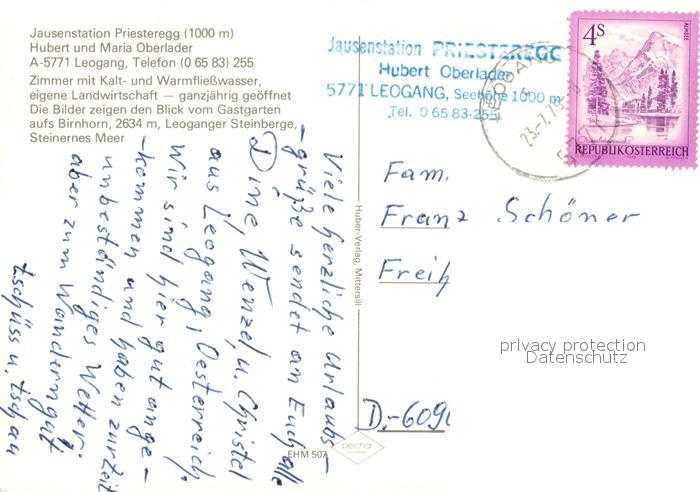 Jausenstation Priesteregg (1000 m)
Hubert und Maria Oberlader
A-5771 Leogang, Telefon (0 65 83) 255
Zimmer mit Kalt- und Warmfließwasser,
eigene Landwirtschaft — ganzjährig geöffnet
Die Bilder zeigen den Blick vom Gastgarten
aufs Birnhorn, 2634 m, Leoganger Steinberge,
Steinernes Meer
Viele herzliche Urlaubs-
-grüße sendet an Euch alle
Dine, Wenzel, u. Christel
aus Leogang, Oesterreich.
Wir sind hier gut ange-
-kommen und haben zurzeit
unbeständiges Wetter.
aber zum Wandern gut
tschüss u. tschau
Huber-Verlag, Mittersill
EHM 507
Jausenstation PRIESTEREGG
Hubert Oberlader
5771 LEOGANG, Seehöhe 1000 m
Tel. 0 65 83-255
LEOGANG
23.-7.79
4S
ALMSEE
REPUBLIK ÖSTERREICH
Fam.
Franz Schöner
Freih
D.-6090
privacy protection
Datenschutz